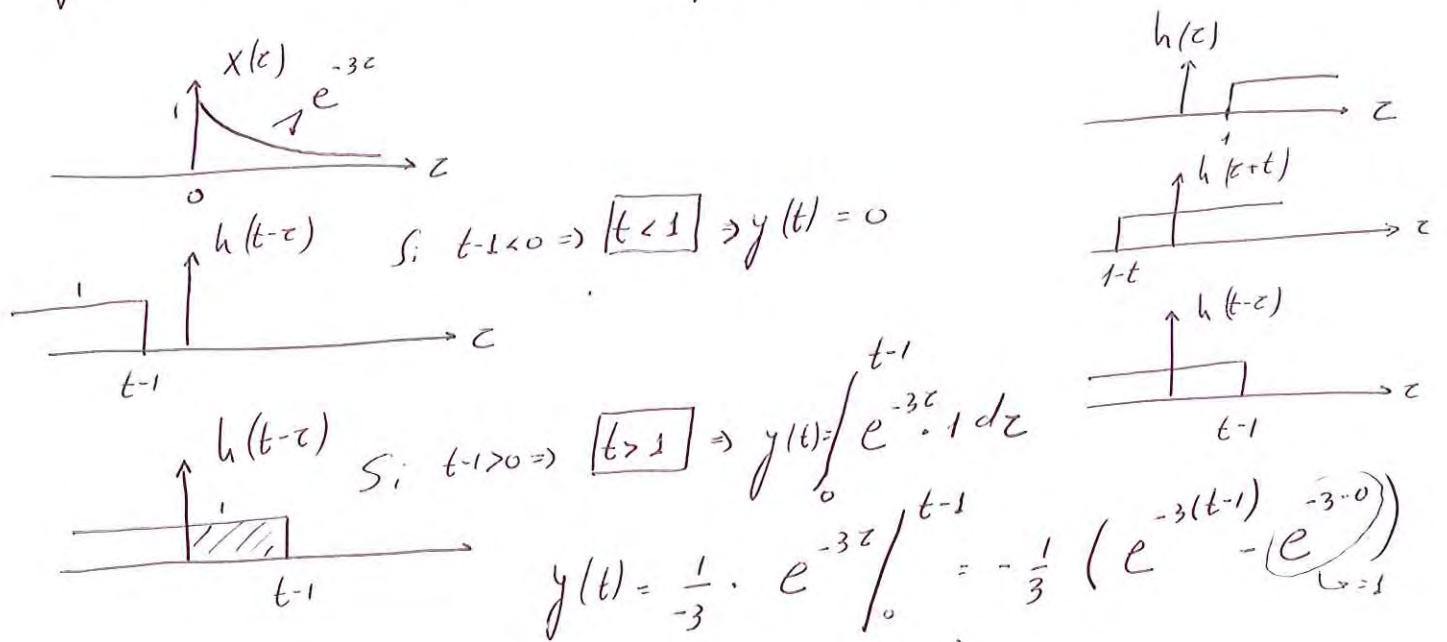 x(τ)
1
e^{-3τ}
τ
0
h(τ)
1
τ
h(τ+t)
1-t
τ
h(t-τ)
t-1
τ
h(t-τ)
1
t-1
τ
Si t-1<0 => t<1 => y(t) = 0
h(t-τ)
1
t-1
Si t-1>0 => t>1 => y(t)= ∫_0^{t-1} e^{-3τ} · 1 dτ
y(t) = \frac{1}{-3} · e^{-3τ} |_0^{t-1} = -\frac{1}{3} (e^{-3(t-1)} - e^{-3·0})
↳=1